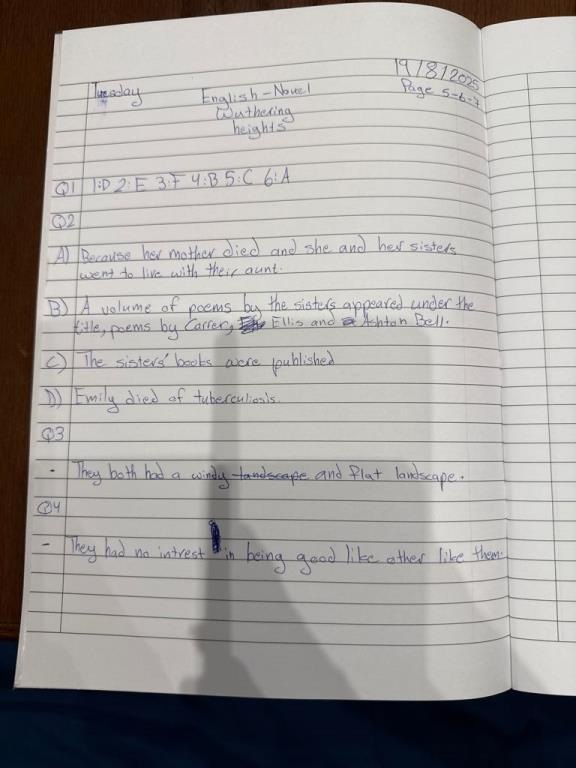 Tuesday
English - Novel
Wuthering
heights
19/8/2025
Page 5-6-7
Q1 1:D 2:E 3:F 4:B 5:C 6:A
Q2
A) Because her mother died and she and her sisters
went to live with their aunt.
B) A volume of poems by the sisters appeared under the
title, poems by Carrer, Ellis and Ashton Bell.
C) The sisters' books were published
D) Emily died of tuberculiosis.
Q3
- They both had a windy landscape and flat landscape.
Q4
- They had no intrest in being good like other like them.